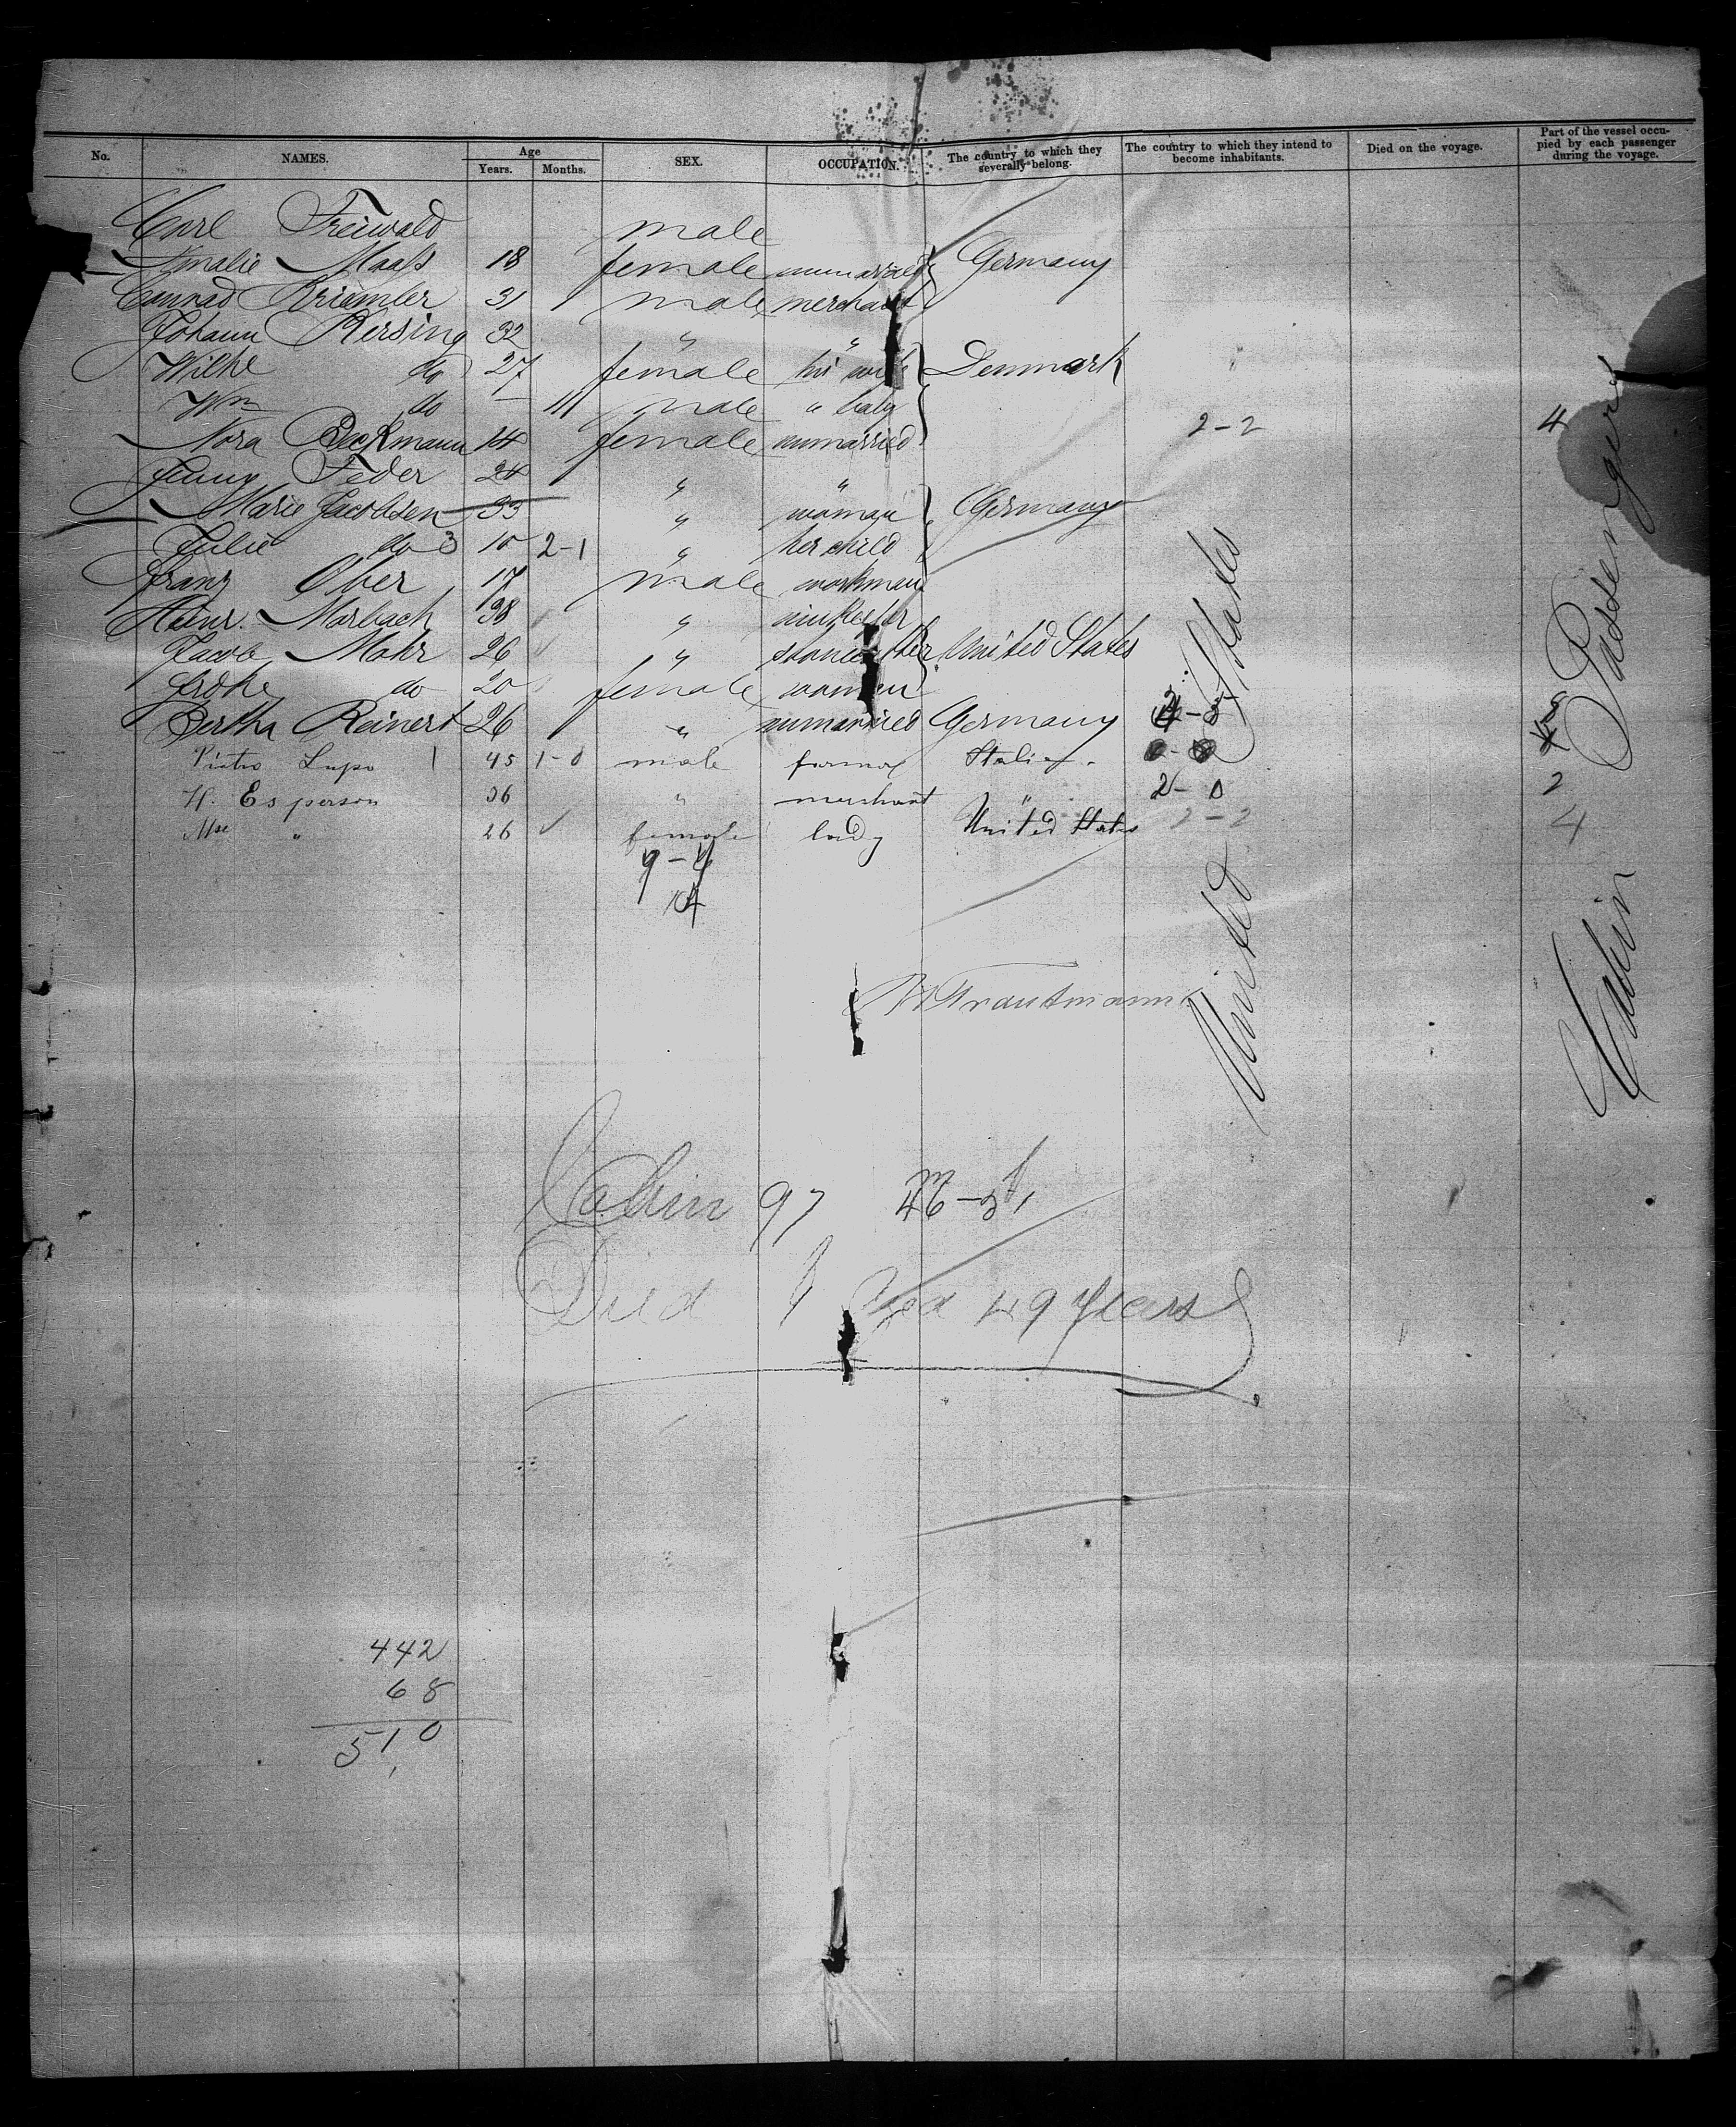 No. NAMES. Age Years. Months. SEX. OCCUPATION. The country to which they severally belong. The country to which they intend to become inhabitants. Died on the voyage. Part of the vessel occupied by each passenger during the voyage.
Carl Freiwald male
Amalie Maaß 18 female unmarried Germany
Conrad 31 male merchant
Johann Kersing 32 " "
Wilhe do 27 female his wife Denmark
Wm do 11 male " baby
Nora Beckmann 14 female unmarried 2-2 4
Jenny Feder 24 " "
Marie Jacobsen 33 " woman Germany
Julie do 3 10 2-1 " her child
Franz Ober 17 male workman
Heinr. Marbach 38 "
Jacob Mohr 26 " United States
do 20 female woman
Bertha Reinert 26 " unmarried Germany
Pietro Lupo 1 45 1-0 male farmer
H. Esperson 36 " merchant " 2-0 2
Mse " 26 female lady United States 2-2 4
United States
Cabin Passengers
W Trautmann
Cabin 97 m f
Died 1 Aged 49 Years
442
68
510